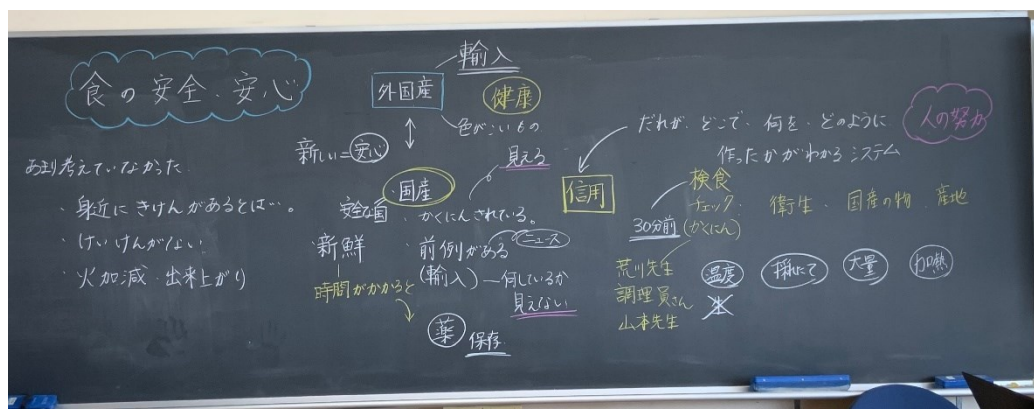 食の安全・安心
あまり考えていなかった
・身近にきけんがあるとは…。
・けいけんがない
・火加減・出来上がり
輸入
外国産
健康
色がこいもの
新しい=安心
見える
国産
安全な国
・かくにんされている。
新鮮
・前例がある
ニュース
(輸入)―何しているか
見えない
時間がかかると
薬
保存
だれが、どこで、何を、どのように
作ったかがわかるシステム
人の努力
信用
検食
30分前
チェック・(かくにん)
衛生・国産の物・産地
荒川先生
調理員さん
山本先生
温度
生
大量
加熱